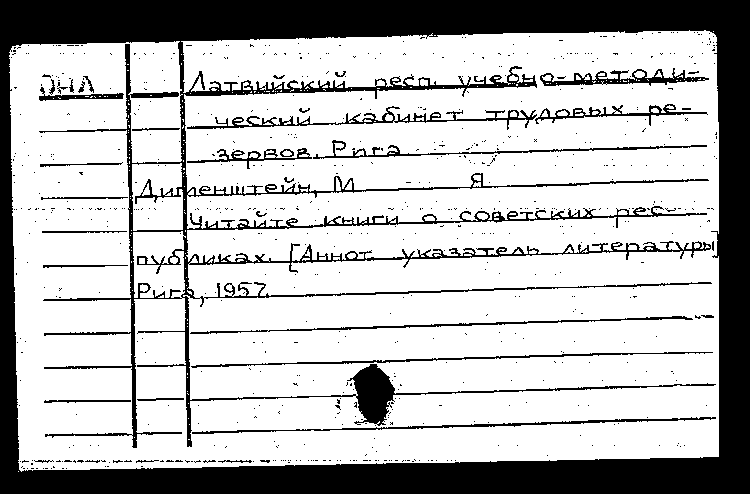 ДНЛ Латвийский респ. учебно-методи-
ческий кабинет трудовых ре-
зервов. Рига
Дименштейн, М Я.
Читайте книги о советских рес-
публиках. [Аннот. указатель литературы]
Рига, 1957.